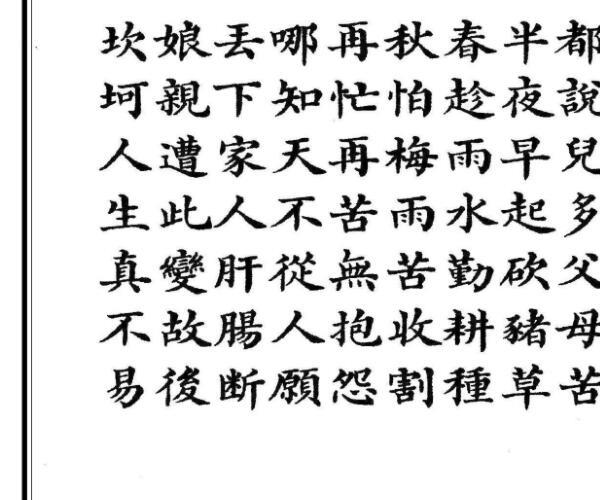 都說兒多父母苦
半夜早起砍豬草
春趁雨水勤耕種
秋怕梅雨苦收割
再忙再苦無抱怨
哪知天不從人願
丟下家人肝腸断
娘親遭此變故後
坎坷人生真不易